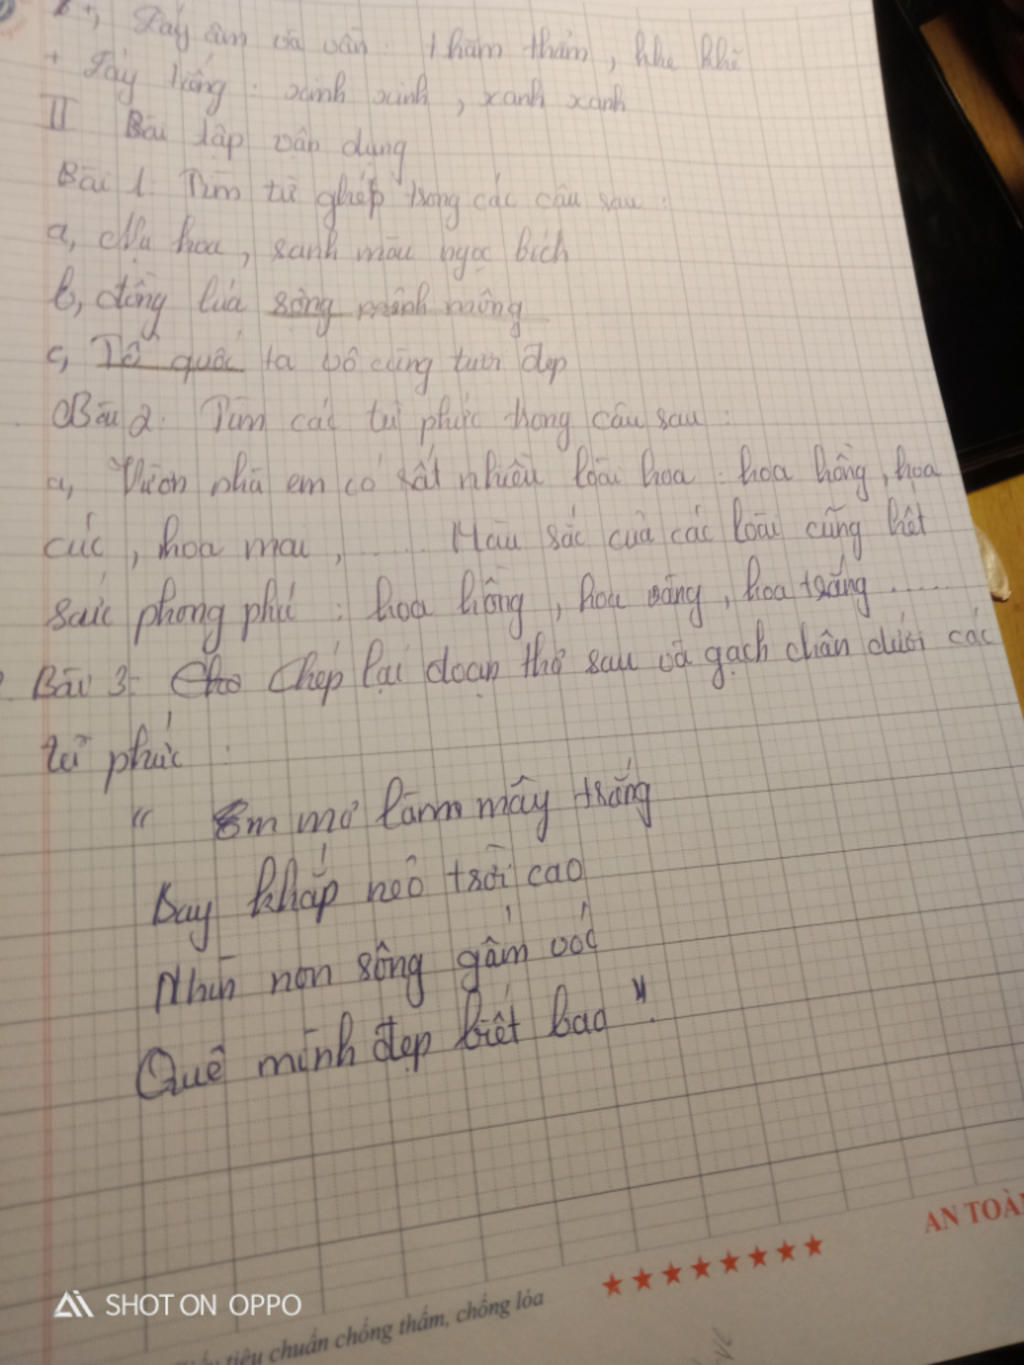 +, Láy âm và vần : thăm thẳm, khe khẽ
+ Láy tiếng : xinh xinh, xanh xanh
II Bài tập vận dụng
Bài 1. Tìm từ ghép trong các câu sau :
a, hoa, xanh màu ngọc bích
b, đồng lúa rộng mênh mông
c, Tổ quốc ta vô cùng tươi đẹp
Bài 2. Tìm các từ phức trong câu sau :
a, Vườn nhà em có rất nhiều loài hoa : hoa hồng, hoa
cúc, hoa mai, ...... Màu sắc của các loài cũng hết
sức phong phú : hoa hồng, hoa vàng, hoa trắng ......
Bài 3 Cho Chép lại đoạn thơ sau và gạch chân dưới các
từ phức :
" Em mơ làm mây trắng
Bay khắp nẻo trời cao
Nhìn non sông gấm vóc
Quê mình đẹp biết bao ".
AN TOÀN
★★★★★★★★
tiêu chuẩn chống thấm, chống lóa
SHOT ON OPPO